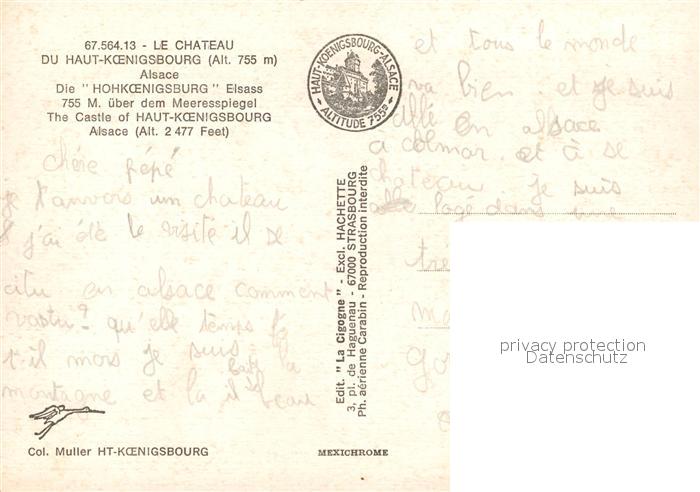 67.564.13 - LE CHATEAU
DU HAUT-KŒNIGSBOURG (Alt. 755 m)
Alsace
Die "HOHKŒNIGSBURG" Elsass
755 M. über dem Meeresspiegel
The Castle of HAUT-KŒNIGSBOURG
Alsace (Alt. 2 477 Feet)
chére pépé
je t'anvois um chateau
j'ai été le visite il se
citu en alsace comment
vastu? qu'elle temps f
t-il mois je suis la
montagne et la il beau
Col. Muller HT-KŒNIGSBOURG
HAUT-KOENIGSBOURG-ALSACE
ALTITUDE 755m
Edit. "La Cigogne" - Excl. HACHETTE
3, pl. de Haguenau - 67000 STRASBOURG
Ph. aérienne Carabin - Reproduction interdite
MEXICHROME
et tous le monde
va bien et je suis
allé en alsace
a colmar et à se
chateau je suis
logé dans une
tré
ma
privacy protection
Datenschutz